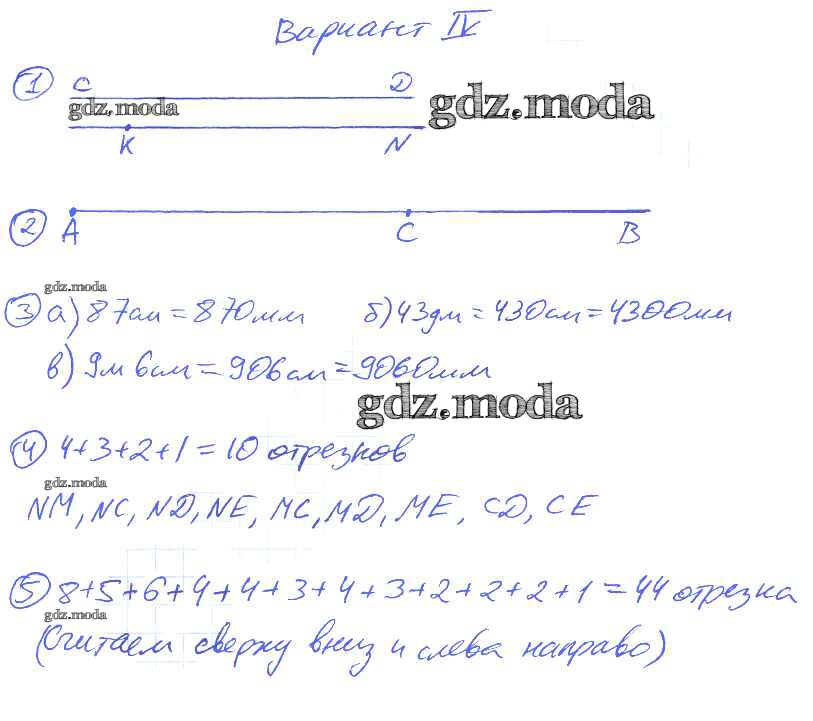 Вариант IV
1 C D
gdz.moda gdz.moda
K N
2 A C B
gdz.moda
3 а) 87см = 870мм б) 43дм = 430см = 4300мм
в) 9м 6см = 906см = 9060мм
gdz.moda
4 4+3+2+1 = 10 отрезков
gdz.moda
NM, NC, ND, NE, MC, MD, ME, CD, CE
5 8+5+6+4+4+3+4+3+2+2+2+1 = 44 отрезка
gdz.moda
(Считаем сверху вниз и слева направо)